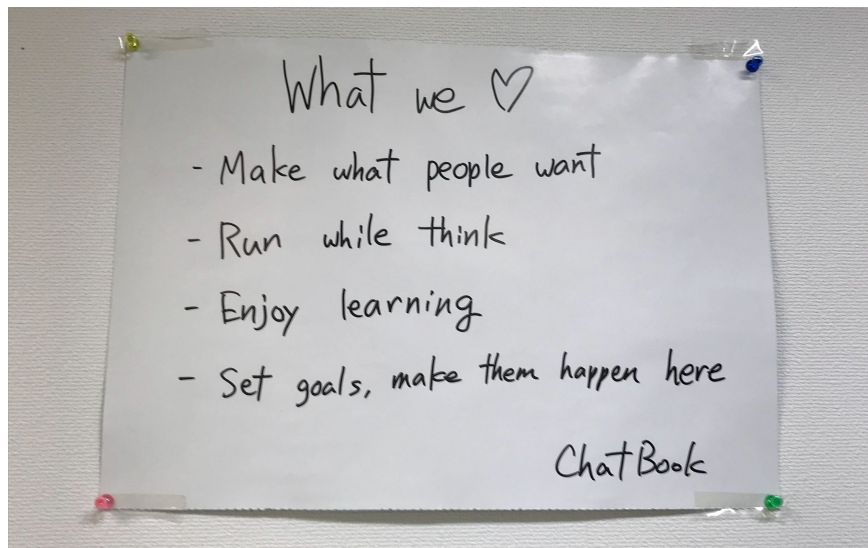 What we ♡
- Make what people want
- Run while think
- Enjoy learning
- Set goals, make them happen here
ChatBook